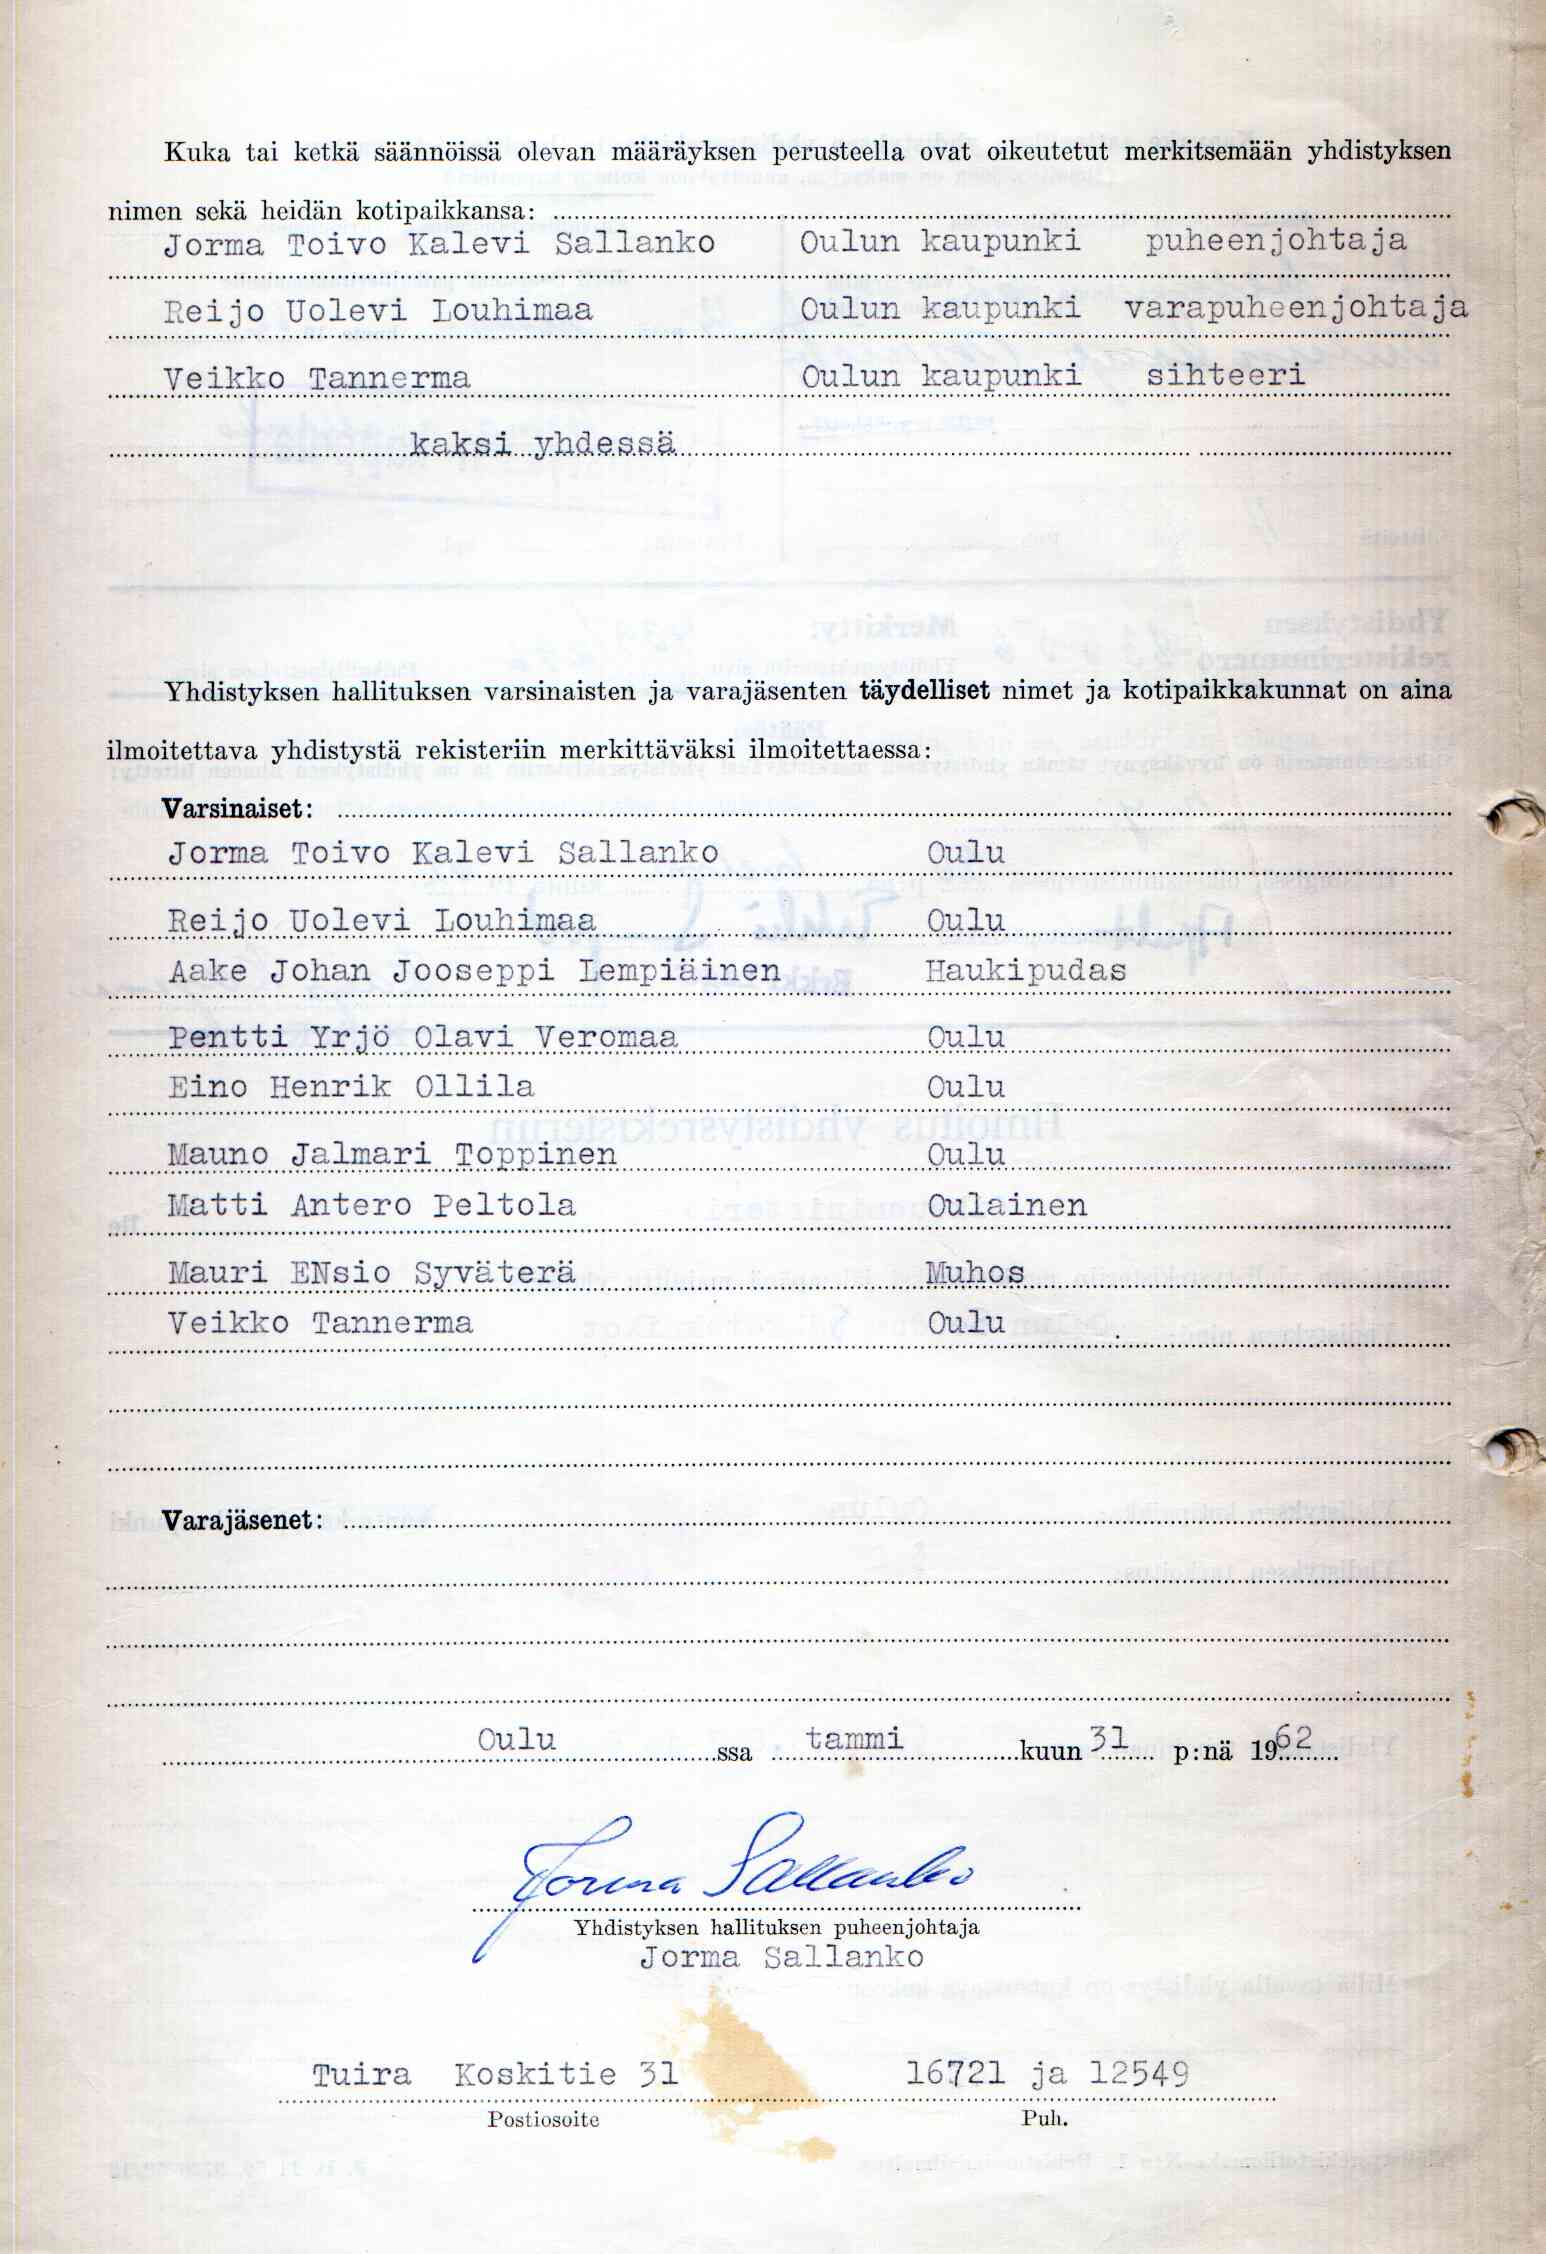 Kuka tai ketkä säännöissä olevan määräyksen perusteella ovat oikeutetut merkitsemään yhdistyksen
nimen sekä heidän kotipaikkansa:
Jorma Toivo Kalevi Sallanko Oulun kaupunki puheenjohtaja
Reijo Uolevi Louhimaa Oulun kaupunki varapuheenjohtaja
Veikko Tannerma Oulun kaupunki sihteeri
kaksi yhdessä
Yhdistyksen hallituksen varsinaisten ja varajäsenten täydelliset nimet ja kotipaikkakunnat on aina
ilmoitettava yhdistystä rekisteriin merkittäväksi ilmoitettaessa:
Varsinaiset:
Jorma Toivo Kalevi Sallanko Oulu
Reijo Uolevi Louhimaa Oulu
Aake Johan Jooseppi Lempiäinen Haukipudas
Pentti Yrjö Olavi Veromaa Oulu
Eino Henrik Ollila Oulu
Mauno Jalmari Toppinen Oulu
Matti Antero Peltola Oulainen
Mauri ENsio Syväterä Muhos
Veikko Tannerma Oulu
Varajäsenet:
Oulu ssa tammi kuun 31 p:nä 1962
Jorma Sallanko
Yhdistyksen hallituksen puheenjohtaja
Jorma Sallanko
Tuira Koskitie 31 16721 ja 12549
Postiosoite Puh.